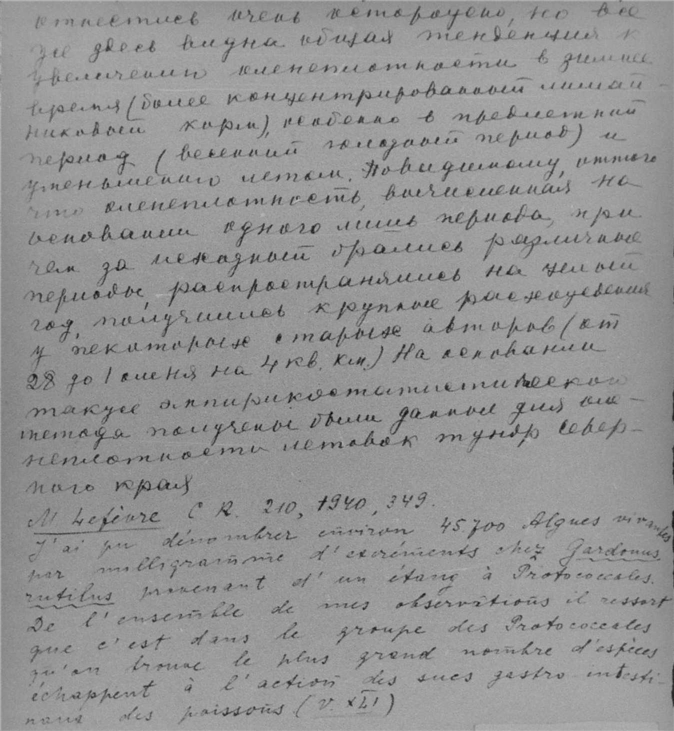 отнестись очень осторожно, но все
же здесь видна общая тенденция к
увеличению оленеплотности в зимнее
время (более концентрированный лишай-
никовый корм), особенно в предлетний
период (весенний голодный период) и
уменьшению летом. Повидимому, оттого
что оленеплотность, вычисленная на
основании одного лишь периода, при
чем за исходный брались различные
периоды, распространялись на целый
год, получились крупные расхождения
у некоторых старых авторов (от
28 до 1 оленя на 4 кв. км.) На основании
такуже эмпирикостатистической
метода получены были данные для оле-
неплотности летовок тундр Север-
ного края
M Lefèvre C R. 210, 1940, 349.
J'ai pu dénombrer environ 45700 Algues vivantes
par milligramme d'excréments chez Gardonus
rutilus provenant d'un étang à Protococcales.
De l'ensemble de mes observations il ressort
que c'est dans le groupe des Protococcales
qu'on trouve le plus grand nombre d'espèces
échappent à l'action des sucs gastro intesti-
naux des poissons (V. XLI)